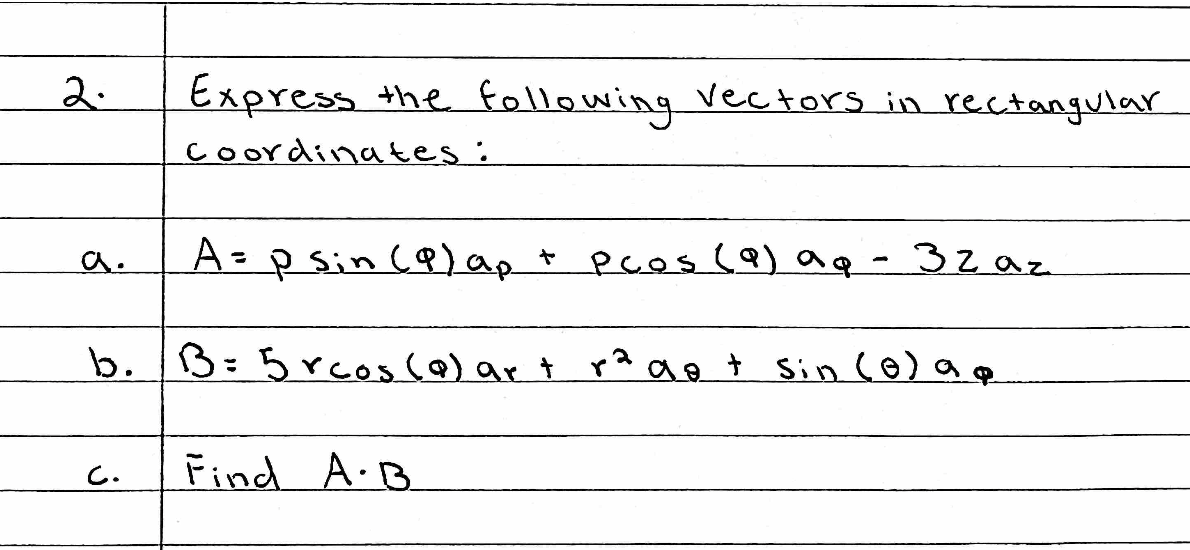 2. Express the following vectors in rectangular
coordinates:
a. A = ρ sin(φ) aρ + ρcos(φ) aφ - 3z az
b. B = 5rcos(φ) ar + r² aθ + sin(θ) aφ
c. Find A·B